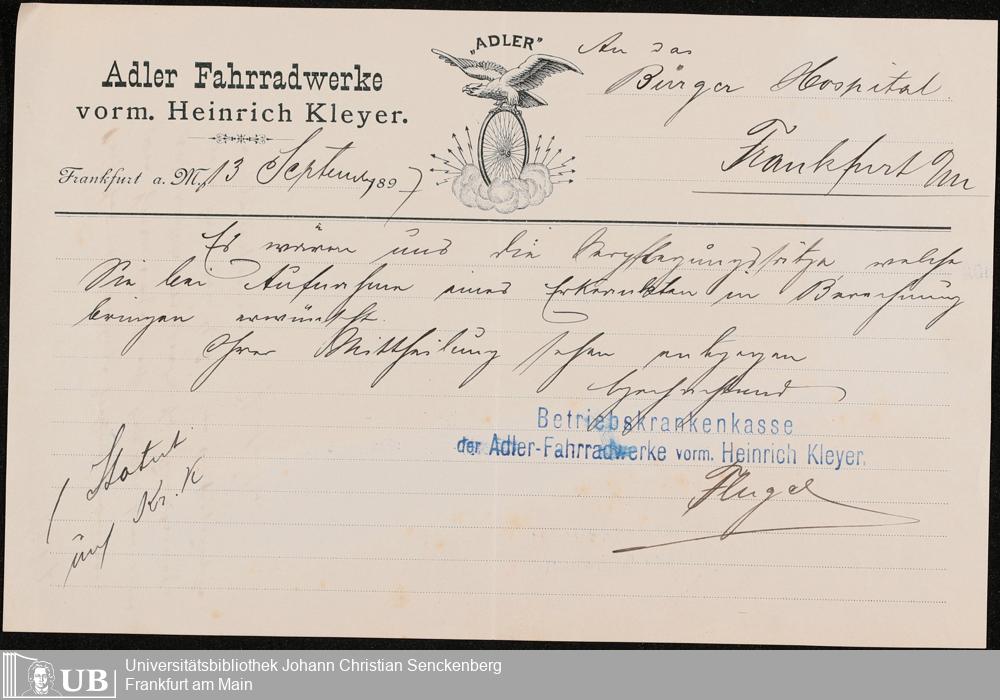 Adler Fahrradwerke
vorm. Heinrich Kleyer.
„ADLER”
Frankfurt a. M., 13 September 1897
An das
Bürger Hospital.
Frankfurt a/M
Es wären uns die Verpflegungssätze, welche
Sie bei Aufnahme eines Erkrankten in Berechnung
bringen erwünscht.
Ihrer Mittheilung sehen entgegen
Hochachtend
Betriebskrankenkasse
der Adler-Fahrradwerke vorm. Heinrich Kleyer.
Flügel
Statut
Kr. K
UB
Universitätsbibliothek Johann Christian Senckenberg
Frankfurt am Main